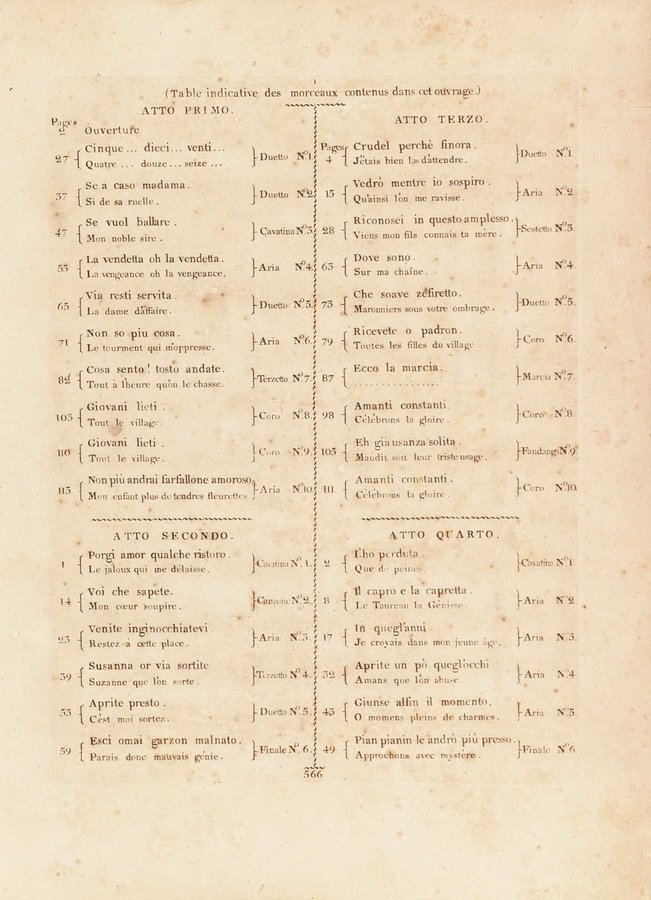 (Table indicative des morceaux contenus dans cet ouvrage.)
ATTO PRIMO.
Pages
2 Ouverture
27 Cinque ... dieci ... venti ... Duetto No. 1.
Quatre ... douze ... seize ...
37 Se a caso madama. Duetto No. 2.
Si de sa ruelle.
47 Se vuol ballare. Cavatina No. 3.
Mon noble sire.
55 La vendetta oh la vendetta. Aria No. 4.
La vengeance oh la vengeance.
65 Via resti servita. Duetto No. 5.
La dame d'affaire.
71 Non so piu cosa. Aria No. 6.
Le tourment qui m'oppresse.
82 Cosa sento! tosto andate. Terzetto No. 7.
Tout à l'heure qu'on le chasse.
103 Giovani lieti. Coro No. 8.
Tout le village.
110 Giovani lieti. Coro No. 9.
Tout le village.
115 Non più andrai farfallone amoroso. Aria No. 10.
Mon enfant plus de tendres fleurettes.
ATTO SECONDO.
1 Porgi amor qualche ristoro. Cavatina No. 1.
Le jaloux qui me délaisse.
14 Voi che sapete. Canzone No. 2.
Mon cœur soupire.
23 Venite inginocchiatevi. Aria No. 3.
Restez à cette place.
39 Susanna or via sortite Terzetto No. 4.
Suzanne que l'on sorte.
53 Aprite presto. Duetto No. 5.
C'est moi sortez.
59 Esci omai garzon malnato. Finale No. 6.
Parais donc mauvais génie.
ATTO TERZO.
Pages
4 Crudel perchè finora. Duetto No. 1.
J'étais bien las d'attendre.
15 Vedrò mentre io sospiro. Aria No. 2.
Qu'ainsi l'on me ravisse.
28 Riconosci in questo amplesso. Sestetto No. 3.
Viens mon fils connais ta mère.
63 Dove sono. Aria No. 4.
Sur ma chaîne.
73 Che soave zéfiretto. Duetto No. 5.
Maronniers sous votre ombrage.
79 Ricevete o padron. Coro No. 6.
Toutes les filles du village.
87 Ecco la marcia. Marcia No. 7.
. . . . . . . . . . . . . .
98 Amanti constanti. Coro No. 8.
Célébrons la gloire.
105 Eh già usanza solita. Fandango No. 9.
Maudit soit leur triste usage.
111 Amanti constanti. Coro No. 10.
Célébrons la gloire.
ATTO QUARTO.
2 L'ho perduta. Cavatina No. 1.
Que de peines.
8 Il capro e la capretta. Aria No. 2.
Le Taureau la Génisse.
17 In quegl'anni. Aria No. 3.
Je croyais dans mon jeune âge.
32 Aprite un pò quegl'occhi Aria No. 4.
Amans que l'on abuse.
43 Giunse alfin il momento. Aria No. 5.
O momens pleins de charmes.
49 Pian pianin le andrò più presso. Finale No. 6
Approchons avec mystère.
566